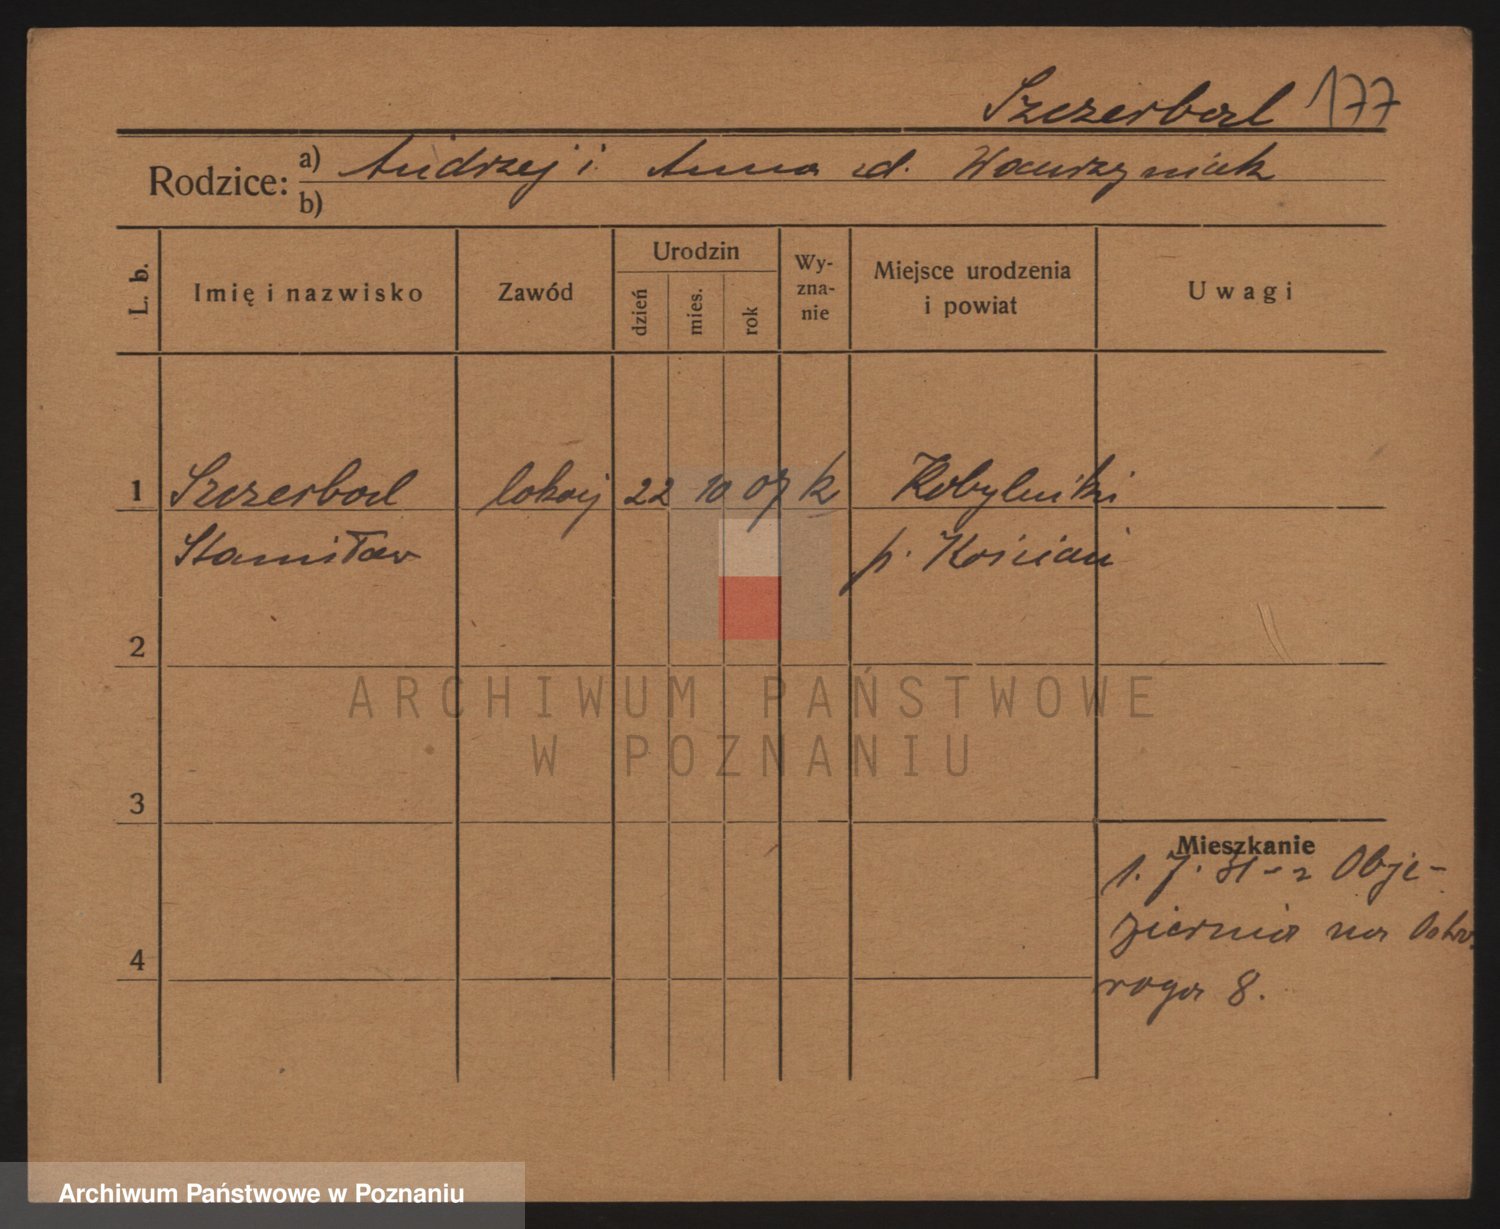 Szczerbal 177
Rodzice: a) Andrzej i Anna zd. Wawrzyniak
b)
L. b.
Imię i nazwisko
Zawód
Urodzin
dzień
mies.
rok
Wy-
zna-
nie
Miejsce urodzenia
i powiat
Uwagi
1 Szczerbal lokaj 22 10 07 k Kobylniki
Stanisław p. Kościan
2
3
4
Mieszkanie
1. 7. 31 - z Obje-
ziernia na
roga 8.
ARCHIWUM PAŃSTWOWE
W POZNANIU
Archiwum Państwowe w Poznaniu